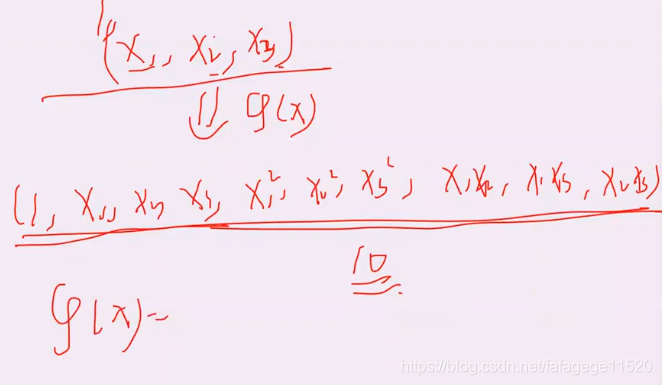 (x₁, x₂, x₃)
⇓ φ(x)
(1, x₁, x₂, x₃, x₁², x₂², x₃², x₁x₂, x₁x₃, x₂x₃)
10
φ(x)=
https://blog.csdn.net/lafagege11520